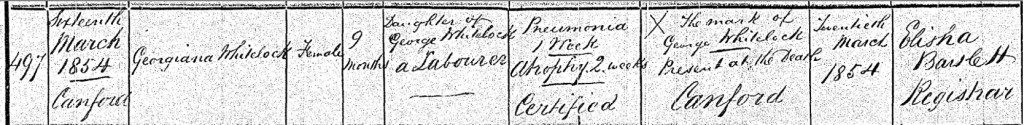 497
Sixteenth
March
1854
Canford
Georgiana Whitelock
Female
9
months
Daughter of
George Whitelock
a Labourer
Pneumonia
1 Week
Atrophy 2 weeks
Certified
X The mark of
George Whitelock
Present at the Death
Canford
Twentieth
March
1854
Elisha
Bartlett
Registrar